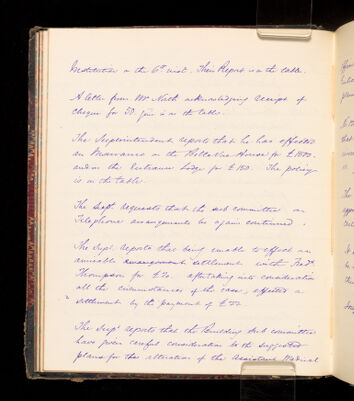 Institution on the 6th inst. Their Report is on the table.
A letter from Mr North acknowledging receipt of
cheque for 50 is on the table.
The Superintendent reports that he has effected
an Insurance on the House for £1500.
and on the Entrance Lodge for £150. The policy
is on the table.
The Supt requests that the sub committee on
Telephone arrangements be again continued.
The Supt reports that being unable to effect an
amicable settlement with Fredk
Thompson for £20. after taking into consideration
all the circumstances of the case, effected a
settlement by the payment of £22
The Supt reports that the Building sub committee
have given careful consideration to the suggested
plans for the alteration of the Assistant Medical